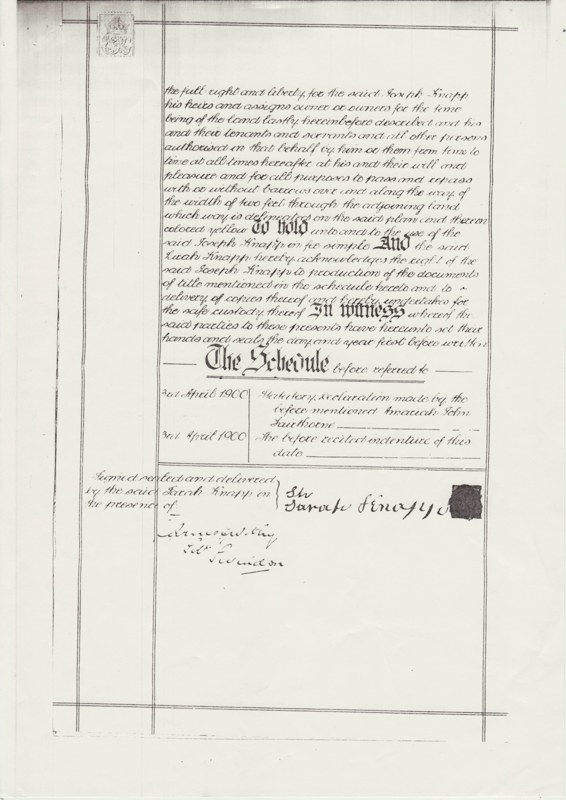 the full right and liberty for the said Joseph Knapp
his heirs and assigns owner or owners for the time
being of the land lastly hereinbefore described and his
and their tenants and servants and all other persons
authorised in that behalf by him or them from time to
time at all times hereafter at his and their will and
pleasure and for all purposes to pass and repass
with or without barrows over and along the way of
the width of two feet through the adjoining land
which way is delineated on the said plan and thereon
colored yellow To hold unto and to the use of the
said Joseph Knapp in fee simple And the said
Sarah Knapp hereby acknowledges the right of the
said Joseph Knapp to production of the documents
of title mentioned in the schedule hereto and to
delivery of copies thereof and hereby undertakes for
the safe custody thereof In witness whereof the
said parties to these presents have hereunto set their
hands and seals the day and year first before written
The Schedule before referred to
3rd April 1900 Statutory declaration made by the
before mentioned Amariah John
Fairthorne
3rd April 1900 The before recited indenture of this
date
Signed sealed and delivered
by the said Sarah Knapp in
the presence of
Sarah Knapp
Swindon